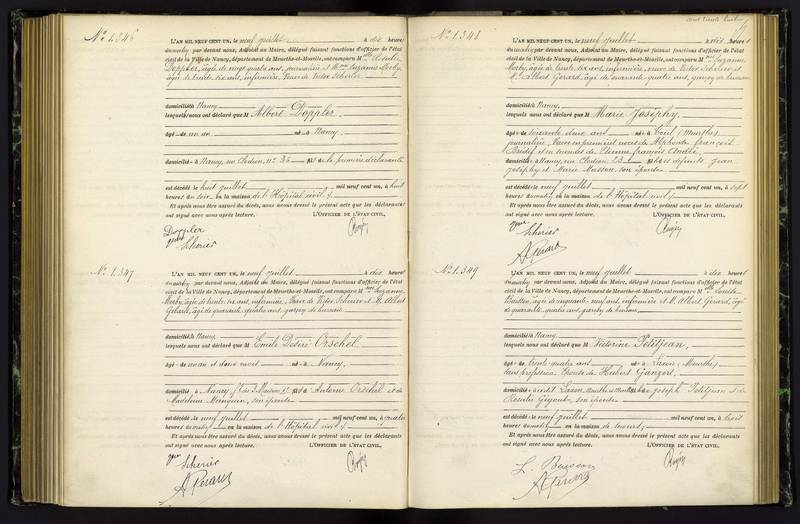 No 1.346
L'AN MIL NEUF CENT UN, le neuf juillet à dix heures
du matin par devant nous, Adjoint au Maire, délégué faisant fonctions d'officier de l'état
civil de la Ville de Nancy, département de Meurthe-et-Moselle, ont comparu Mlle
Doppler, âgée de vingt quatre ans, journalière et Mme Suzanne Morby,
âgée de trente six ans, infirmière, veuve de Victor Scherier
domiciliés à Nancy
lesquels nous ont déclaré que M Albert Doppler
âgé de un an né à Nancy
domicilié à Nancy, rue Clodion, no 36 fils de la première déclarante
est décédé le huit juillet mil neuf cent un, à huit
heures du soir en la maison de l'Hôpital civil
Et après nous être assuré du décès, nous avons dressé le présent acte que les déclarants
ont signé avec nous après lecture. L'OFFICIER DE L'ÉTAT CIVIL,
Doppler
Scherier
No 1.347
L'AN MIL NEUF CENT UN, le neuf juillet à dix heures
du matin par devant nous, Adjoint au Maire, délégué faisant fonctions d'officier de l'état
civil de la Ville de Nancy, département de Meurthe-et-Moselle, ont comparu Mme Suzanne
Morby, âgée de trente six ans, infirmière, veuve de Victor Scherier et M. Albert
Gérard, âgé de quarante quatre ans, garçon de bureau
domiciliés à Nancy
lesquels nous ont déclaré que M Emile Désiré Orschel
âgé de un an et deux mois né à Nancy
domicilié à Nancy fils de Antoine Orschel et de
Madeleine Mangeon, son épouse
est décédé le neuf juillet mil neuf cent un, à quatre
heures du matin en la maison de l'Hôpital civil
Et après nous être assuré du décès, nous avons dressé le présent acte que les déclarants
ont signé avec nous après lecture. L'OFFICIER DE L'ÉTAT CIVIL,
Scherier
A Gérard
No 1.348
L'AN MIL NEUF CENT UN, le neuf juillet à dix heures
du matin par devant nous, Adjoint au Maire, délégué faisant fonctions d'officier de l'état
civil de la Ville de Nancy, département de Meurthe-et-Moselle, ont comparu Mme Suzanne
Morby, âgée de trente six ans, infirmière, veuve de Victor Scherier et
M. Albert Gérard, âgé de quarante quatre ans, garçon de bureau
domiciliés à Nancy
lesquels nous ont déclaré que M Marie Joséphy
âgée de soixante deux ans née à Toul (Meurthe)
journalière, Veuve en premières noces de Alphonse françois
Bridif et en secondes de Etienne françois André
domiciliée à Nancy, rue Clodion, 23 fille des défunts Jean
Joséphy et Marie Masson, son épouse
est décédée le neuf juillet mil neuf cent un, à sept
heures du matin en la maison de l'Hôpital civil
Et après nous être assuré du décès, nous avons dressé le présent acte que les déclarants
ont signé avec nous après lecture. L'OFFICIER DE L'ÉTAT CIVIL,
Scherier
A Gérard
No 1.349
L'AN MIL NEUF CENT UN, le neuf juillet à dix heures
du matin par devant nous, Adjoint au Maire, délégué faisant fonctions d'officier de l'état
civil de la Ville de Nancy, département de Meurthe-et-Moselle, ont comparu Mlle Louise
Buisson, âgée de cinquante neuf ans, infirmière et M. Albert Gérard, âgé
de quarante quatre ans, garçon de bureau
domiciliés à Nancy
lesquels nous ont déclaré que M Victorine Petitjean
âgée de trente quatre ans née à Laxou, Meurthe
sans profession, Epouse de Hubert Ganzert
domiciliée à Laxou, Meurthe et Moselle fille de Joseph Petitjean et de
Rosalie Gigout, son épouse
est décédée le neuf juillet mil neuf cent un, à huit
heures du matin en la maison de secours
Et après nous être assuré du décès, nous avons dressé le présent acte que les déclarants
ont signé avec nous après lecture. L'OFFICIER DE L'ÉTAT CIVIL,
L. Buisson
A Gérard